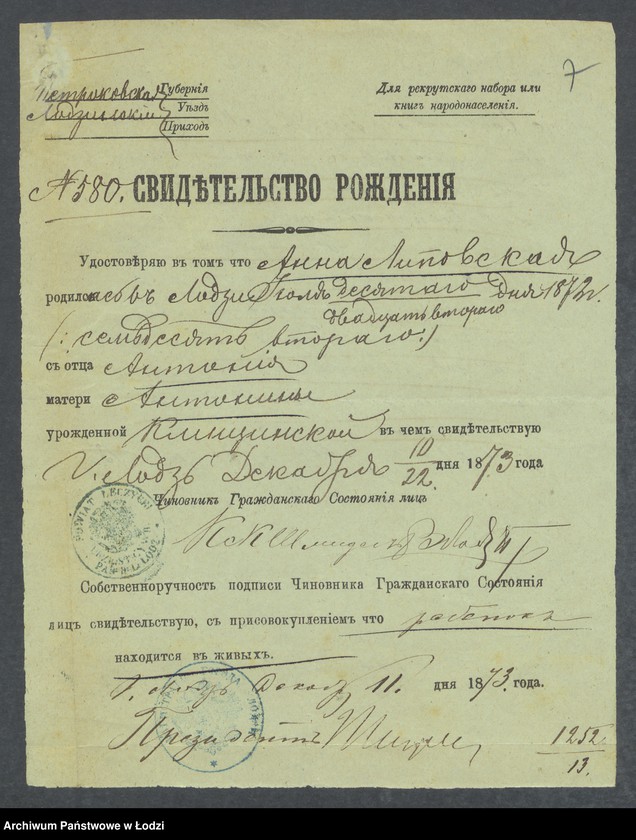 Петроковская Губернія
Лодзинскій Уѣздъ
Приходъ
Для рекрутскаго набора или
книгъ народонаселенія.
7
№ 580. СВИДѢТЕЛЬСТВО РОЖДЕНІЯ
Удостовѣряю въ томъ что Анна Липовская
родилась въ Лодзи Іюля десятаго дня 1872 г.
двадцать втораго
(: семьдесятъ втораго :)
съ отца Антонія
матери Антонины
урожденной Клищинской въ чемъ свидѣтельствую
Г. Лодзь Декабря 10/22 дня 1873 года
Чиновникъ Гражданскаго Состоянія лицъ
POWIAT ŁĘCZYCKI
Собственноручность подписи Чиновника Гражданскаго Состоянія
лицъ свидѣтельствую, съ присовокупленіемъ что
находится въ живыхъ.
Г. Лодзь Декабр 11. дня 1873 года.
Президентъ
1252
13.
Archiwum Państwowe w Łodzi